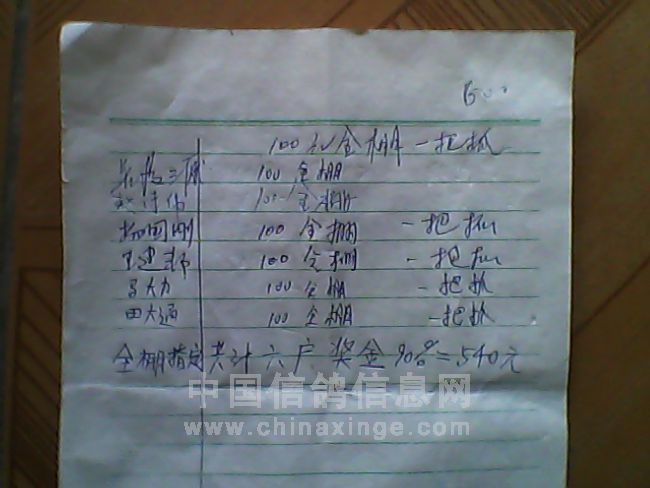 600
100元全棚一把抓
100 全棚
100 全棚
杨国刚 100 全棚 一把抓
王建邦 100 全棚 一把抓
马大力 100 全棚 一把抓
田大通 100 全棚 一把抓
全棚指定共计六户 奖金90%=540元
中国信鸽信息网
www.chinaxinge.com